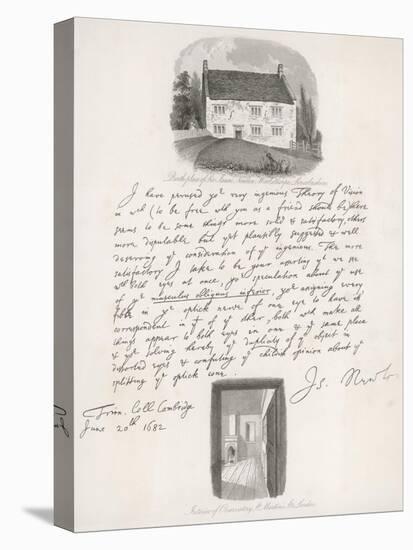 Birth place of Sir Isaac Newton, Woolsthorpe, Lincolnshire
I have perused yoͬ very ingenious Theory of Vision
in wͨʰ (to be free wᵗʰ you as a friend should be) there
seems to be some things more solid & satisfactory, others
more disputable but yet plausibly suggested & well
deserving yᵉ consideration of yᵉ ingenious. The more
satisfactory I take to be your asserting yᵗ we see
wᵗʰ both eyes at once, yoʳ speculation about yᵉ use
of yᵉ musculus obliquus inferior, yoʳ assigning every
fibre in yᵉ optick nerve of one eye to have its
correspondent in yᵗ of yᵉ other, both wᶜʰ make all
things appear to both eyes in one & yᵉ same place
& yoʳ solving hereby yᵉ duplicity of yᵉ object in
distorted eyes & confuting yᵉ childish opinion about yᵉ
splitting yᵉ optick cone.
Is. Newton
Trin. Coll Cambridge
June 20ᵗʰ 1682
Interior of Observatory, St. Martins St. London